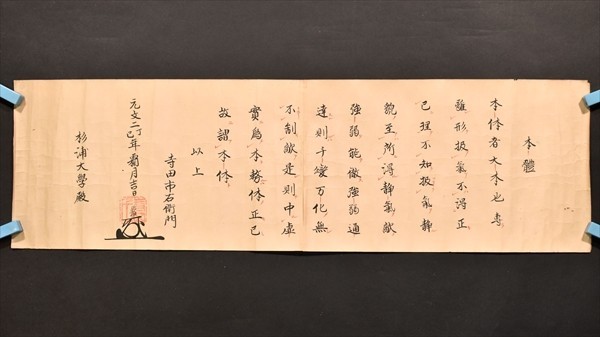 本體
本体者大本也専
雖形扱氣不得正
己理不知扱氣静
貌至所得静氣敵
強弱能儆強弱通
達則千變万化無
不制敵是則中虚
實爲本勢体正己
故謂本体
以上
寺田市右衛門
元文二丁巳年 月吉日
杉浦大學殿